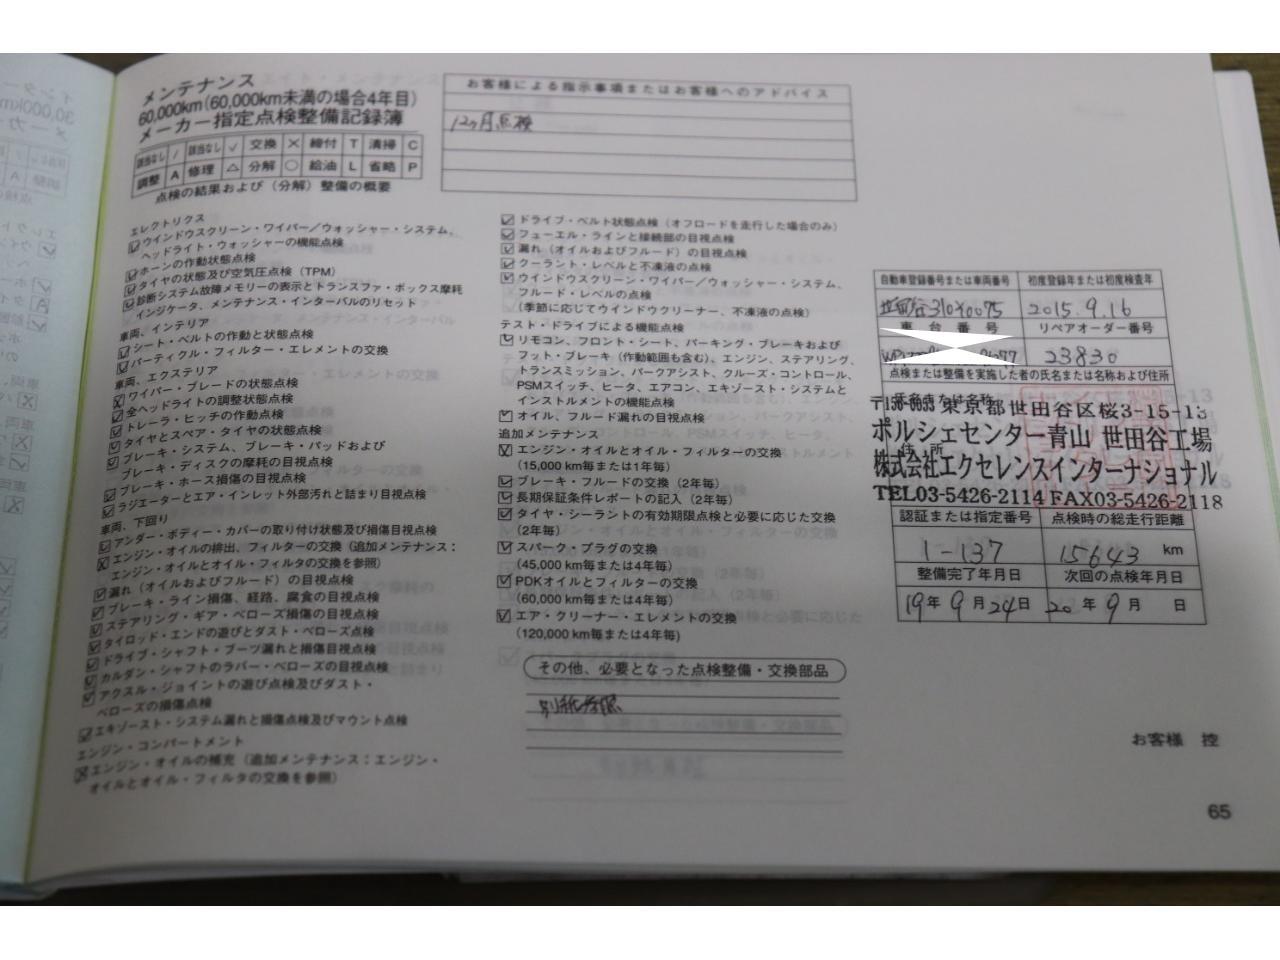 メンテナンス
60,000km(60,000km未満の場合4年目)
メーカー指定点検整備記録簿
該当なし / 該当なし ✓ 交換 × 締付 T 清掃 C
調整 A 修理 △ 分解 ○ 給油 L 省略 P
点検の結果および（分解）整備の概要
お客様による指示事項またはお客様へのアドバイス
12ヶ月点検
エレクトリクス
ウインドウスクリーン・ワイパー／ウォッシャー・システム、
ヘッドライト・ウォッシャーの機能点検
ホーンの作動状態点検
タイヤの状態及び空気圧点検（TPM）
診断システム故障メモリーの表示とトランスファ・ボックス摩耗
インジケータ、メンテナンス・インターバルのリセット
車両、インテリア
シート・ベルトの作動と状態点検
パーティクル・フィルター・エレメントの交換
車両、エクステリア
ワイパー・ブレードの状態点検
全ヘッドライトの調整状態点検
トレーラ・ヒッチの作動点検
タイヤとスペア・タイヤの状態点検
ブレーキ・システム、ブレーキ・パッドおよび
ブレーキ・ディスクの摩耗の目視点検
ブレーキ・ホース損傷の目視点検
ラジエーターとエア・インレット外部汚れと詰まり目視点検
車両、下回り
アンダー・ボディー・カバーの取り付け状態及び損傷目視点検
エンジン・オイルの排出、フィルターの交換（追加メンテナンス：
エンジン・オイルとオイル・フィルターの交換を参照）
漏れ（オイルおよびフルード）の目視点検
ブレーキ・ライン損傷、経路、腐食の目視点検
ステアリング・ギア・ベローズ損傷の目視点検
タイロッド・エンドの遊びとダスト・ベローズ点検
ドライブ・シャフト・ブーツ漏れと損傷目視点検
カルダン・シャフトのラバー・ベローズの目視点検
アクスル・ジョイントの遊び点検及びダスト・
ベローズの損傷点検
エキゾースト・システム漏れと損傷点検及びマウント点検
エンジン・コンパートメント
エンジン・オイルの補充（追加メンテナンス：エンジン・
オイルとオイル・フィルタの交換を参照）
ドライブ・ベルト状態点検（オフロードを走行した場合のみ）
フューエル・ラインと接続部の目視点検
漏れ（オイルおよびフルード）の目視点検
クーラント・レベルと不凍液の点検
ウインドウスクリーン・ワイパー／ウォッシャー・システム、
フルード・レベルの点検
（季節に応じてウインドウクリーナー、不凍液の点検）
テスト・ドライブによる機能点検
リモコン、フロント・シート、パーキング・ブレーキおよび
フット・ブレーキ（作動範囲も含む）、エンジン、ステアリング、
トランスミッション、パークアシスト、クルーズ・コントロール、
PSMスイッチ、ヒータ、エアコン、エキゾースト・システムと
インストルメントの機能点検
オイル、フルード漏れの目視点検
追加メンテナンス
エンジン・オイルとオイル・フィルターの交換
（15,000 km毎または1年毎）
ブレーキ・フルードの交換（2年毎）
長期保証条件レポートの記入（2年毎）
タイヤ・シーラントの有効期限点検と必要に応じた交換
（2年毎）
スパーク・プラグの交換
（45,000 km毎または4年毎）
PDKオイルとフィルターの交換
（60,000 km毎または4年毎）
エア・クリーナー・エレメントの交換
（120,000 km毎または4年毎）
その他、必要となった点検整備・交換部品
別紙参照
自動車登録番号または車両番号 初度登録年または初度検査年
世田谷310 2015.9.16
車台番号 リペアオーダー番号
23830
点検または整備を実施した者の氏名または名称および住所
氏名または名称
〒156-0053 東京都世田谷区桜3-15-13
ポルシェセンター青山 世田谷工場
住所
株式会社エクセレンスインターナショナル
TEL03-5426-2114 FAX03-5426-2118
認証または指定番号 点検時の総走行距離
1-137 15643 km
整備完了年月日 次回の点検年月日
19年 9月 24日 20年 9月 日
お客様 控
65